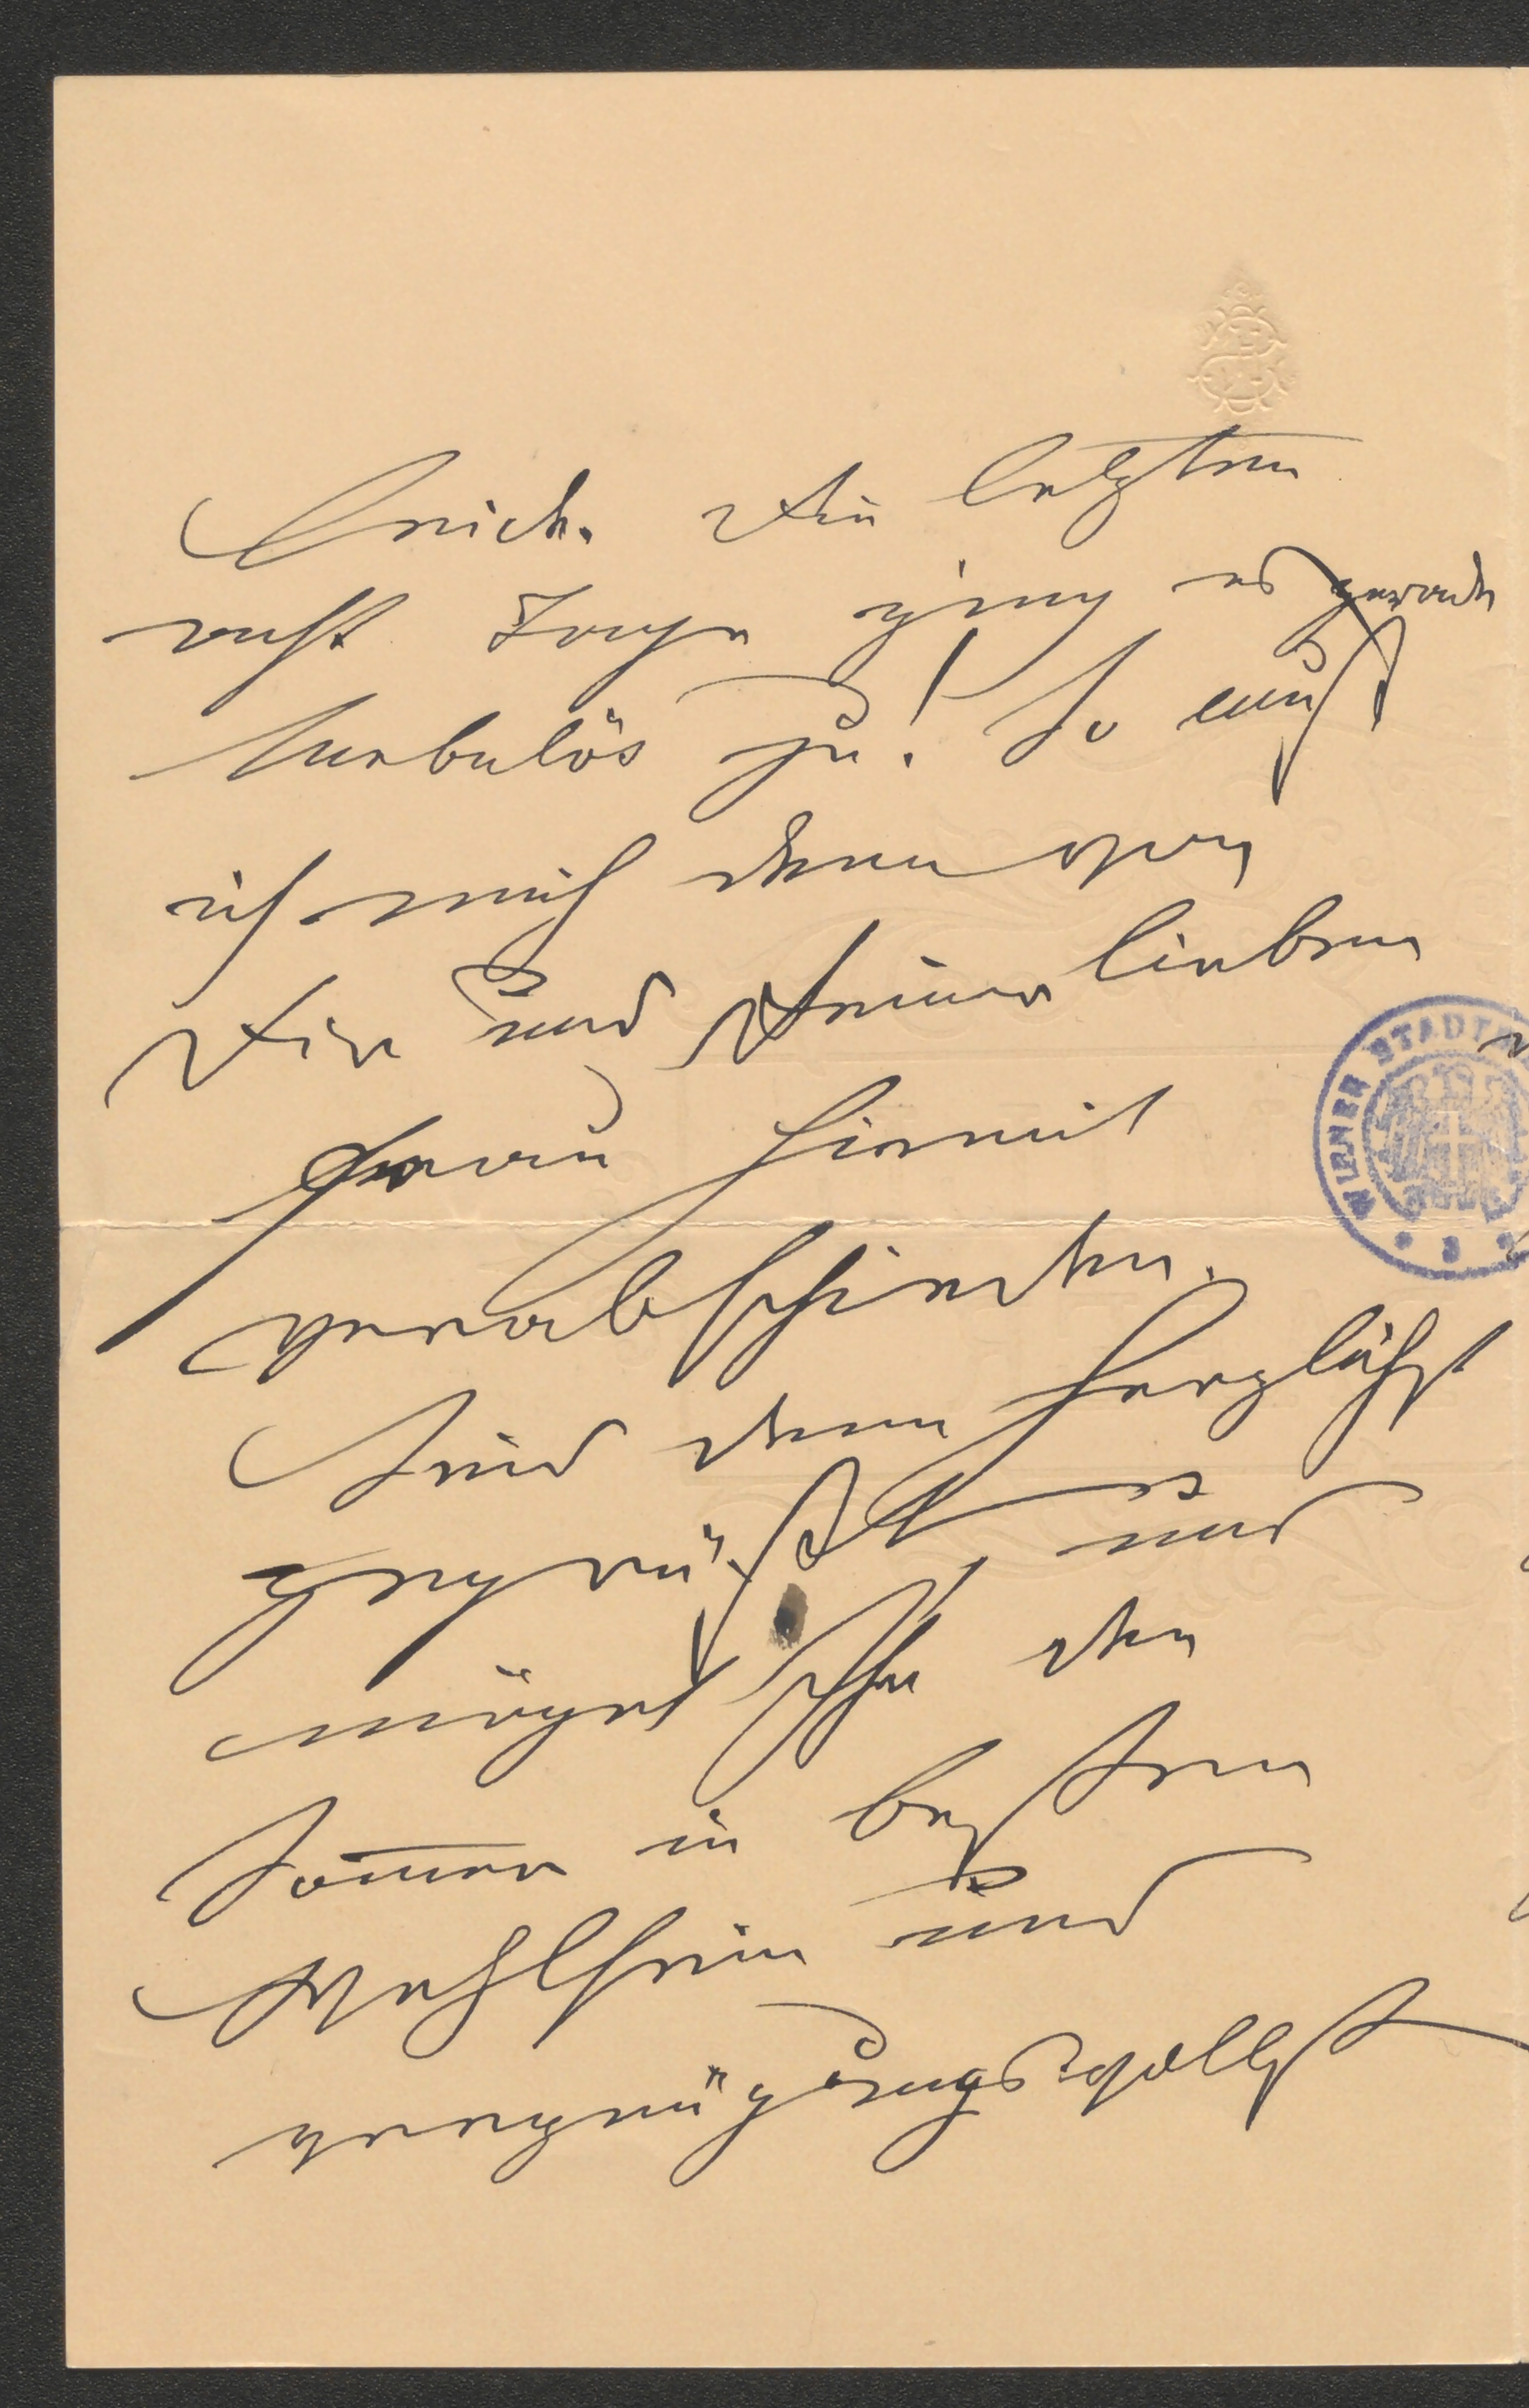 Die letzten
acht Tage ging es gerade
turbulös zu! So muß
ich mich denn von
Dir und Deiner lieben
Frau hiermit
verabschieden.
Seid denn herzlichst
gegrüßt, und
möget Ihr den
Som̅er in bestem
Wohlsein und
vergnügungsvollst
WIENER STADT